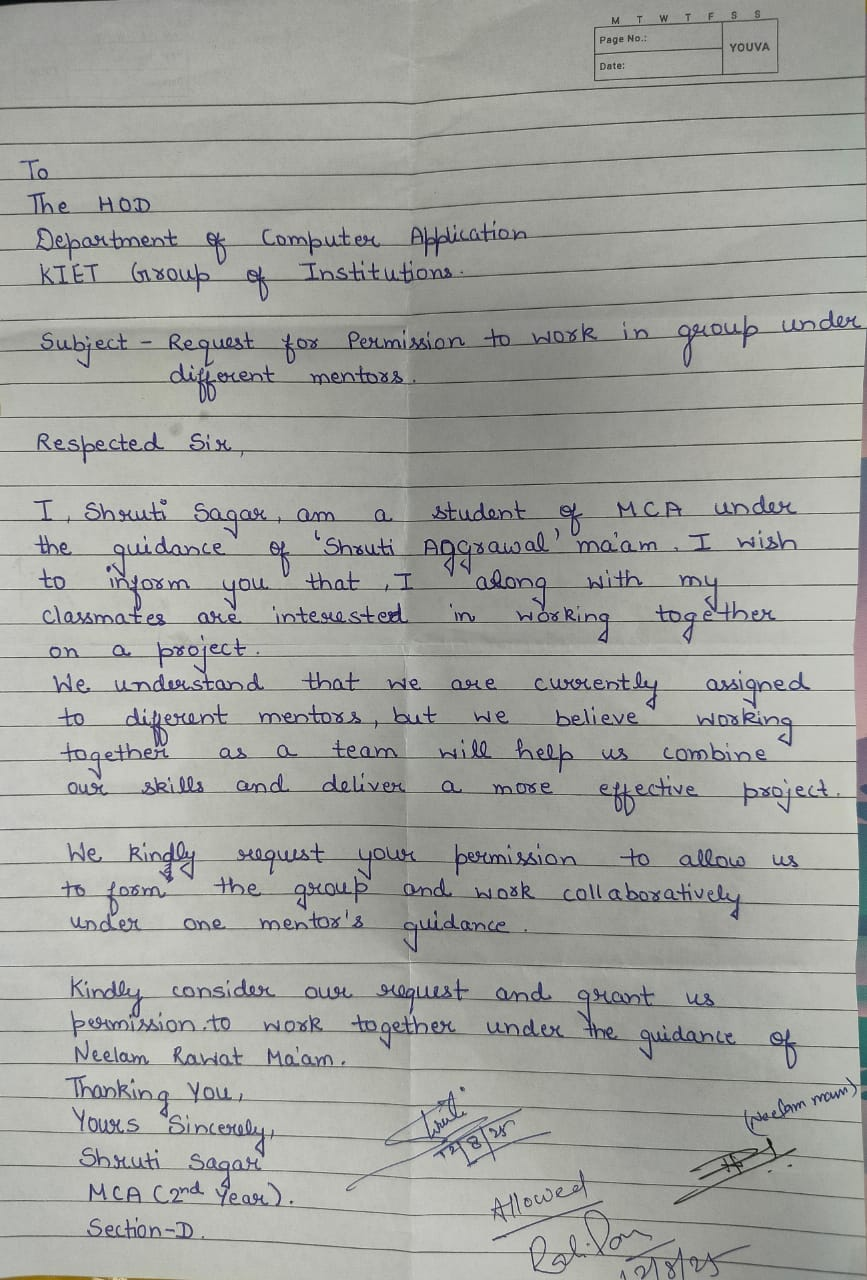 M T W T F S S
Page No.:
YOUVA
Date:
To
The HOD
Department of Computer Application
KIET Group of Institutions.
Subject - Request for Permission to work in group under
different mentors.
Respected Sir,
I, Shruti Sagar, am a student of MCA under
the guidance of 'Shruti Aggrawal' ma'am. I wish
to inform you that, I along with my
classmates are interested in working together
on a project.
We understand that we are currently assigned
to different mentors, but we believe working
together as a team will help us combine
our skills and deliver a more effective project.
We kindly request your permission to allow us
to form the group and work collaboratively
under one mentor's guidance.
Kindly consider our request and grant us
permission to work together under the guidance of
Neelam Rawat Ma'am.
Thanking You,
Yours Sincerely,
Shruti Sagar
MCA (2nd Year).
Section-D.
12/8/25
(Neelam mam)
Allowed
12/8/25